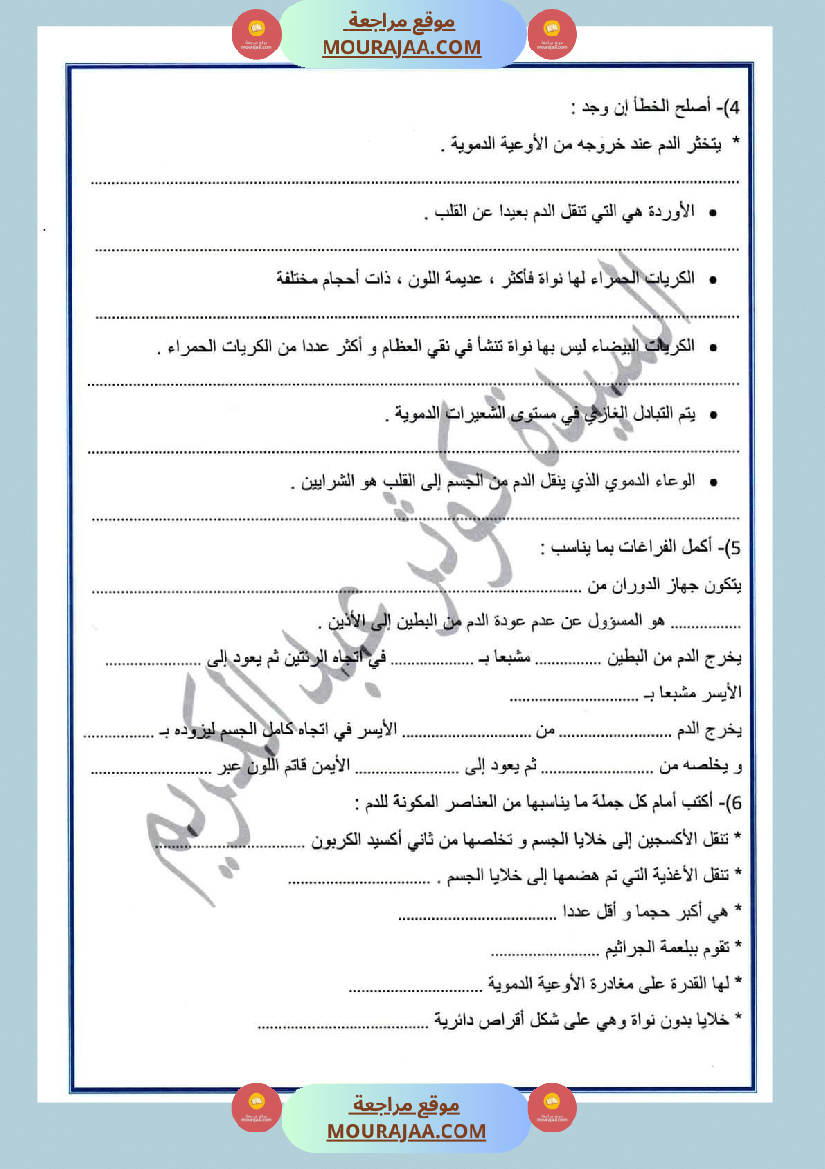 موقع مراجعة
MOURAJAA.COM
4)- أصلح الخطأ إن وجد :
* يتخثر الدم عند خروجه من الأوعية الدموية .
................................................................
• الأوردة هي التي تنقل الدم بعيدا عن القلب .
................................................................
• الكريات الحمراء لها نواة فأكثر ، عديمة اللون ، ذات أحجام مختلفة
................................................................
• الكريات البيضاء ليس بها نواة تنشأ في نقي العظام و أكثر عددا من الكريات الحمراء .
................................................................
• يتم التبادل الغازي في مستوى الشعيرات الدموية .
................................................................
• الوعاء الدموي الذي ينقل الدم من الجسم إلى القلب هو الشرايين .
................................................................
5)- أكمل الفراغات بما يناسب :
يتكون جهاز الدوران من ................................................
................ هو المسؤول عن عدم عودة الدم من البطين إلى الأذين .
يخرج الدم من البطين ................ مشبعا بـ .................... في اتجاه الرئتين ثم يعود إلى ......................
الأيسر مشبعا بـ ..............................
يخرج الدم .......................... من .............................. الأيسر في اتجاه كامل الجسم ليزوده بـ ................
و يخلصه من .......................... ثم يعود إلى ........................ الأيمن قاتم اللون عبر ............................
6)- أكتب أمام كل جملة ما يناسبها من العناصر المكونة للدم :
* تنقل الأكسجين إلى خلايا الجسم و تخلصها من ثاني أكسيد الكربون ..................................
* تنقل الأغذية التي تم هضمها إلى خلايا الجسم . ..................................
* هي أكبر حجما و أقل عددا ......................................
* تقوم ببلعمة الجراثيم ..........................
* لها القدرة على مغادرة الأوعية الدموية ................................
* خلايا بدون نواة وهي على شكل أقراص دائرية ........................................
السيدة كوثر عبد الكريم
موقع مراجعة
MOURAJAA.COM